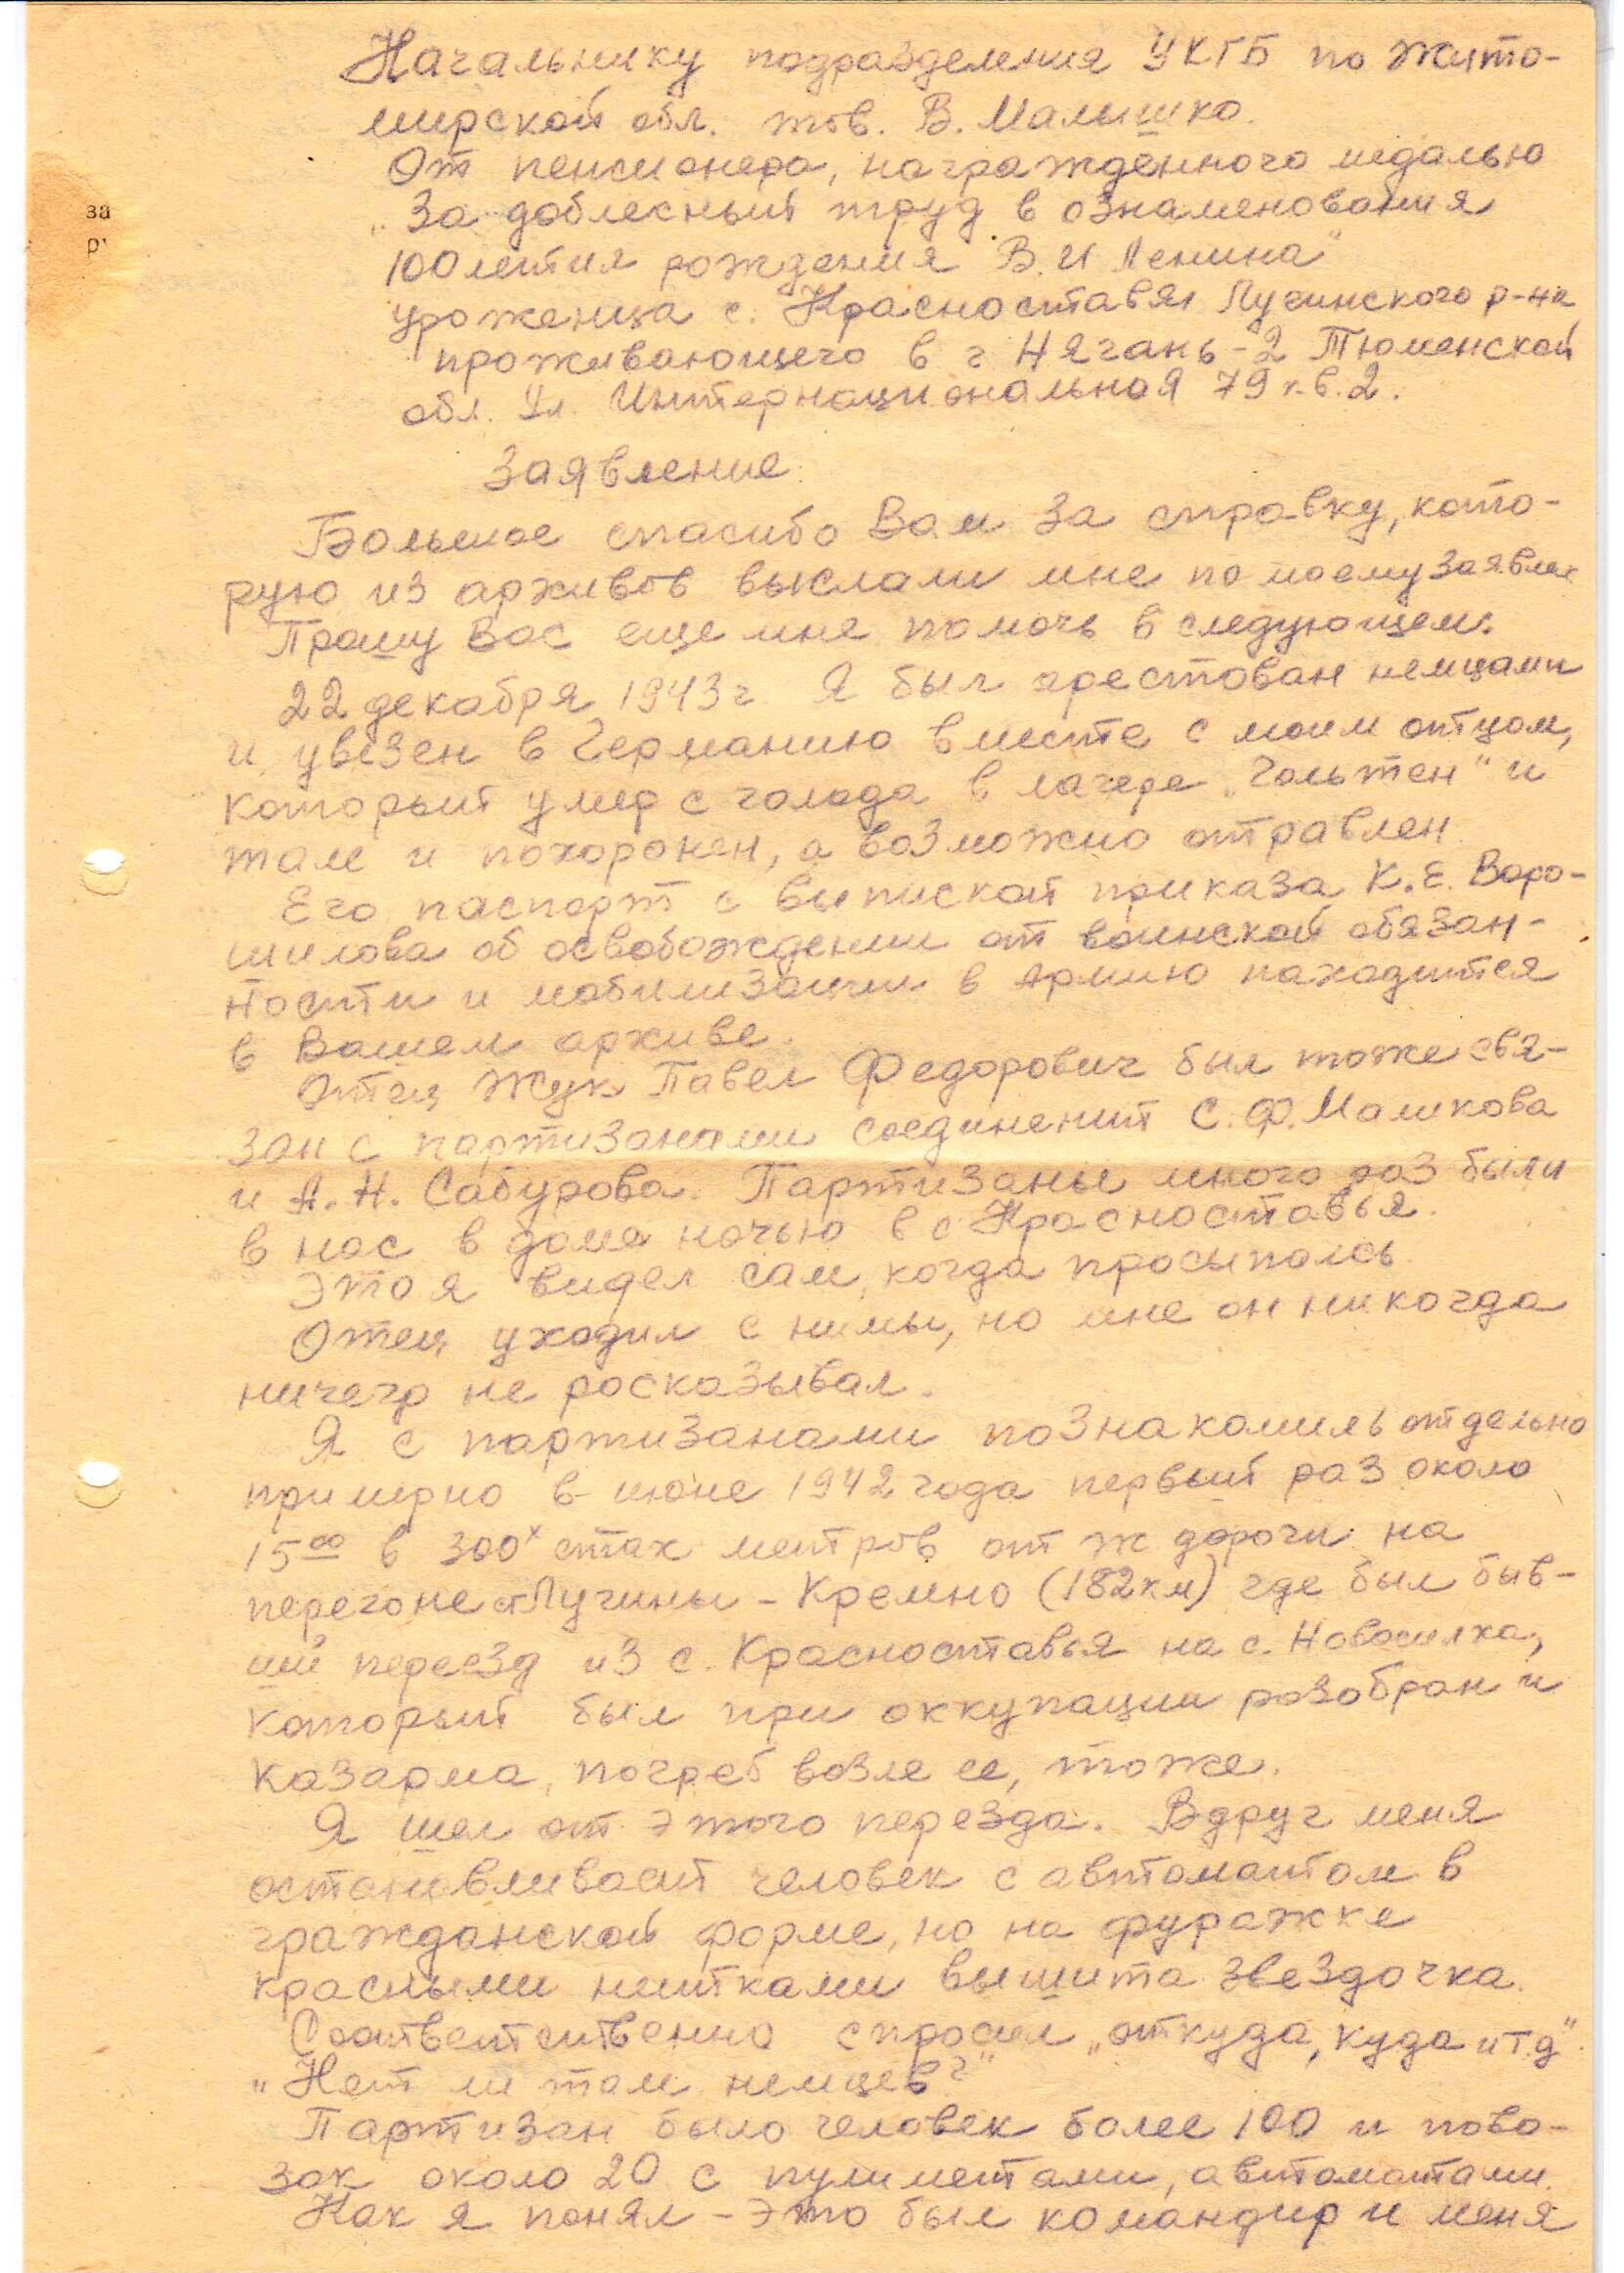 Начальнику подразделения УКГБ по Жито-
мирской обл. тов. В. Малышко.
От пенсионера, награжденного медалью
„За доблесный труд в ознаменования
100летия рождения В. И Ленина"
уроженца с. Красноставя Лугинского р-на
проживающего в г Нягань-2 Тюменской
обл. Ул. Интернациональная 79 к.в.2.
за
ру
Заявление.
Большое спасибо Вам за справку, кото-
рую из архивов выслали мне по моему заявлен
Прошу Вас еще мне помочь в следующем.
22 декабря 1943г Я был арестован немцами
и увезен в Германию вместе с моим отцом,
который умер с голода в лагере „Гольтен" и
там и похоронен, а возможно отравлен.
Его паспорт с выпиской приказа К.Е. Воро-
шилова об освобождении от воинской обязан-
ности и мобилизации в Армию находится
в Вашем архиве.
Отец Жук Павел Федорович был тоже свя-
зан с партизанами соединений С.Ф. Маликова
и А. Н. Сабурова. Партизаны много раз были
в нас в доме ночью в с Красноставья.
Это я видел сам, когда просыпаюсь.
Отец уходил с нимы, но мне он никогда
ничего не росказывал.
Я с партизанами познакомиль отдельно
примерно в июне 1942 года первый раз около
15⁰⁰ в 300ˣ стах метров от ж дороги на
перегоне ст Лугины - Кремно (182км) где был быв-
ший переезд из с. Красноставья на с. Новосилка,
который был при оккупации розобран и
казарма, погреб возле ее, тоже.
Я шел от этого перезда. Вдруг меня
остановливаит человек с автоматом в
гражданской форме, но на фуражке
красными нитками вышита звездочка.
Соответственно спросил „откуда, куда и т.д".
„Нет ли там немцев?"
Партизан было человек более 100 и пово-
зок около 20 с пулиметами, автоматами.
Как я понял - это был командир и меня